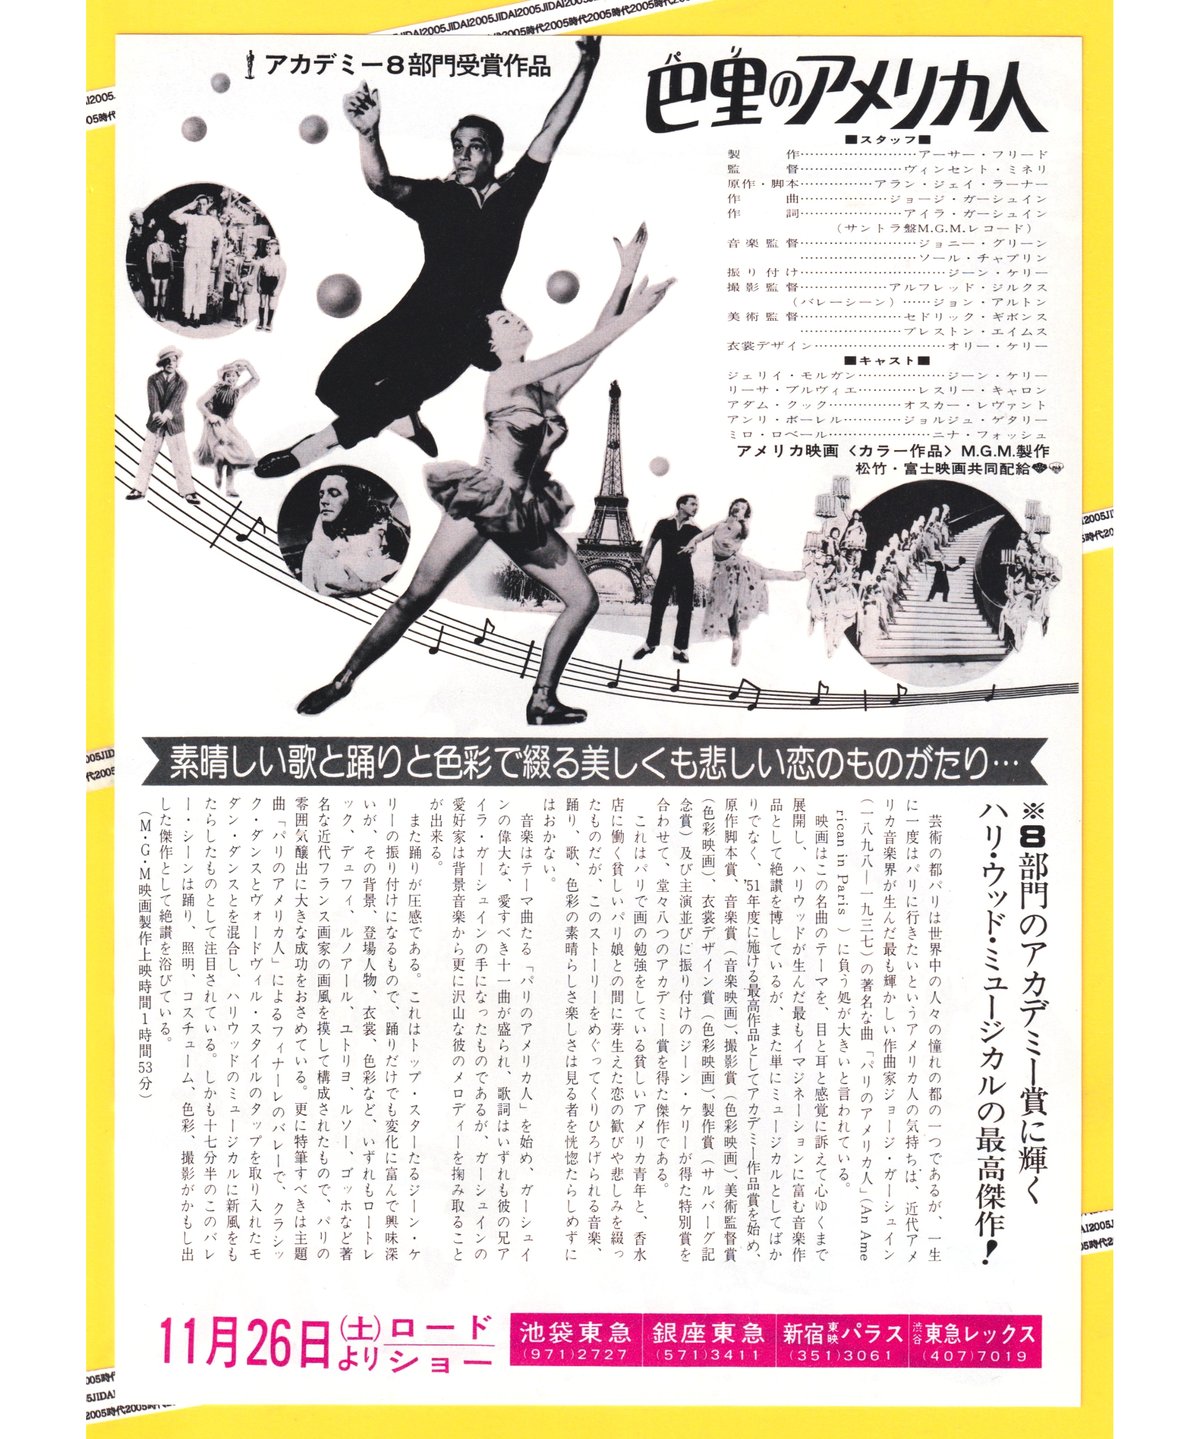 アカデミー8部門受賞作品
巴里のアメリカ人
パリ
■スタッフ■
製作……………………アーサー・フリード
監督…………………ヴィンセント・ミネリ
原作・脚本……………アラン・ジェイ・ラーナー
作曲………………ジョージ・ガーシュイン
作詞…………………アイラ・ガーシュイン
（サントラ盤M.G.M.レコード）
音楽監督……………………ジョニー・グリーン
……………………ソール・チャプリン
振り付け…………………………ジーン・ケリー
撮影監督………………アルフレッド・ジルクス
（バレーシーン）……ジョン・アルトン
美術監督…………………セドリック・ギボンス
…………………プレストン・エイムス
衣裳デザイン………………………オリー・ケリー
■キャスト■
ジェリイ・モルガン……………………ジーン・ケリー
リーサ・ブルヴィエ…………レスリー・キャロン
アダム・クック……………オスカー・レヴァント
アンリ・ボーレル…………ジョルジュ・ゲタリー
ミロ・ロベール…………………ニナ・フォッシュ
アメリカ映画〈カラー作品〉M.G.M.製作
松竹・富士映画共同配給
素晴しい歌と踊りと色彩で綴る美しくも悲しい恋のものがたり…
※8部門のアカデミー賞に輝く
ハリ・ウッド・ミュージカルの最高傑作！
芸術の都パリは世界中の人々の憧れの都の一つであるが、一生
に一度はパリに行きたいというアメリカ人の気持ちは、近代アメ
リカ音楽界が生んだ最も輝かしい作曲家ジョージ・ガーシュイン
（一八九八―一九三七）の著名な曲「パリのアメリカ人」（An Ame
rican in Paris ）に負う処が大きいと言われている。
映画はこの名曲のテーマを、目と耳と感覚に訴えて心ゆくまで
展開し、ハリウッドが生んだ最もイマジネーションに富む音楽作
品として絶讃を博しているが、また単にミュージカルとしてばか
りでなく、'51年度に施ける最高作品としてアカデミー作品賞を始め、
原作脚本賞、音楽賞（音楽映画）、撮影賞（色彩映画）、美術監督賞
（色彩映画）、衣裳デザイン賞（色彩映画）、製作賞（サルバーグ記
念賞）及び主演並びに振り付けのジーン・ケリーが得た特別賞を
合わせて、堂々八つのアカデミー賞を得た傑作である。
これはパリで画の勉強をしている貧しいアメリカ青年と、香水
店に働く貧しいパリ娘との間に芽生えた恋の歓びや悲しみを綴っ
たものだが、このストーリーをめぐってくりひろげられる音楽、
踊り、歌、色彩の素晴らしさ楽しさは見る者を恍惚たらしめずに
はおかない。
音楽はテーマ曲たる「パリのアメリカ人」を始め、ガーシュイ
ンの偉大な、愛すべき十一曲が盛られ、歌詞はいずれも彼の兄ア
イラ・ガーシュインの手になったものであるが、ガーシュインの
愛好家は背景音楽から更に沢山な彼のメロディーを掬み取ること
が出来る。
また踊りが圧感である。これはトップ・スターたるジーン・ケ
リーの振り付けになるもので、踊りだけでも変化に富んで興味深
いが、その背景、登場人物、衣裳、色彩など、いずれもロートレ
ック、デュフィ、ルノアール、ユトリヨ、ルソー、ゴッホなど著
名な近代フランス画家の画風を摸して構成されたもので、パリの
雰囲気醸出に大きな成功をおさめている。更に特筆すべきは主題
曲「パリのアメリカ人」によるフィナーレのバレーで、クラシッ
ク・ダンスとヴォードヴィル・スタイルのタップを取り入れたモ
ダン・ダンスとを混合し、ハリウッドのミュージカルに新風をも
たらしたものとして注目されている。しかも十七分半のこのバレ
ー・シーンは踊り、照明、コスチューム、色彩、撮影がかもし出
した傑作として絶讃を浴びている。
（M・G・M映画製作上映時間1時間53分）
11月26日(土)よりロードショー
池袋東急
(971)2727
銀座東急
(571)3411
新宿東映パラス
(351)3061
渋谷東急レックス
(407)7019
JIDAI2005JIDAI2005JIDAI2005JIDAI2005
2005時代2005時代2005時代2005時代